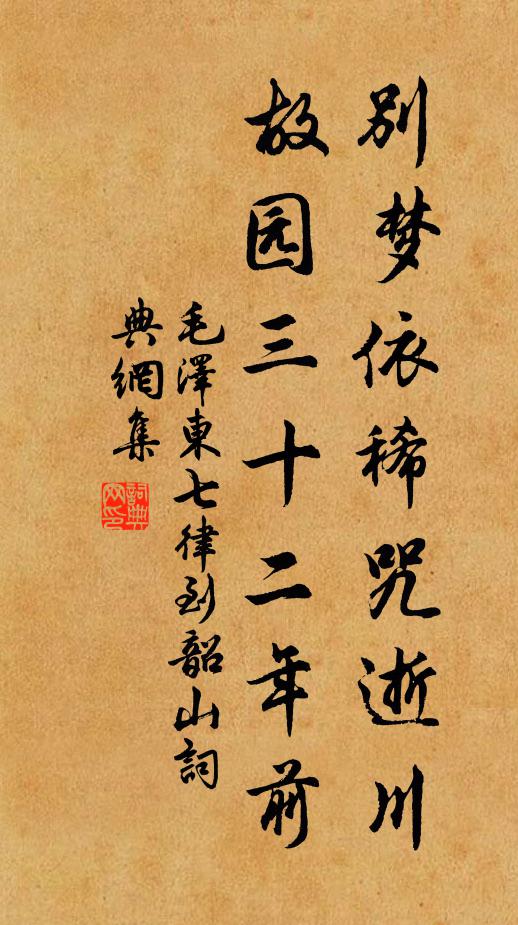 别梦依稀咒逝川
故园三十二年前
毛澤東七律到韶山詞
典網集
詞典
网印